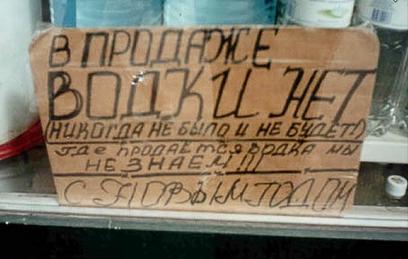 В ПРОДАЖЕ
ВОДКИ НЕТ
(НИКОГДА НЕ БЫЛО И НЕ БУДЕТ!)
Где продаётся водка мы
НЕ ЗНАЕМ!!!
С НОВЫМ ГОДОМ